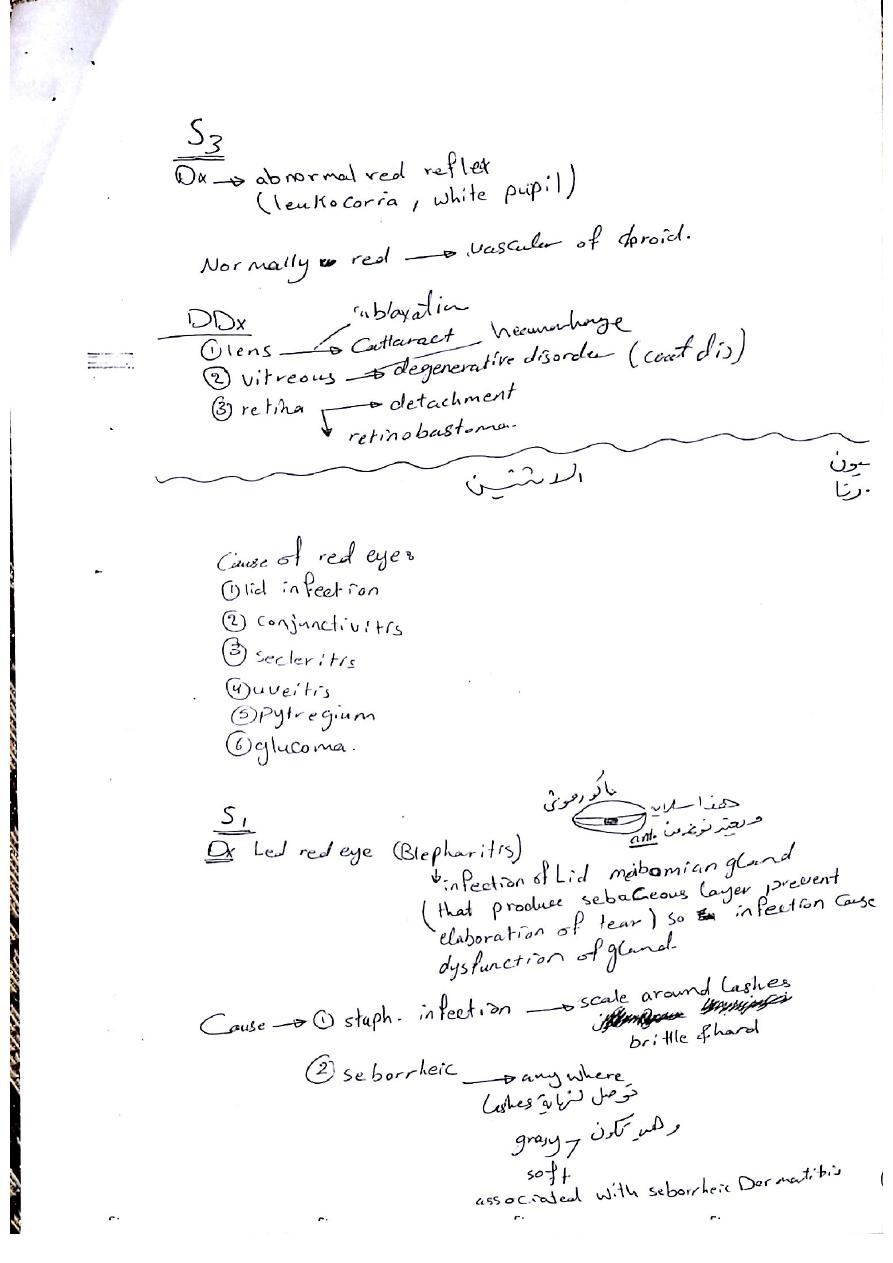 S3
Dx → abnormal red reflex
(leukocoria, white pupil)
Normally red → vascular of choroid.
DDx
sublaxation
① lens → Cattaract haemorrhage
② vitreous → degenerative disorder (coat dis)
③ retina → detachment
↓ retinobastoma.
الاثنين
Cause of red eye:
① lid infection
② conjunctivitis
③ secleritis
④ uveitis
⑤ pytregium
⑥ glucoma.
S1
Dx Led red eye (Blepharitis)
↓ infection of Lid meibomian gland
(that produce sebaceous layer prevent
elaboration of tear) so infection cause
dysfunction of gland.
Cause → ① staph. infection → scale around Lashes
brittle & hard
② seborrheic → any where
توصل لنهاية Lashes
وهي تكون → grasy
soft
associated with seborrheic Dermatitis